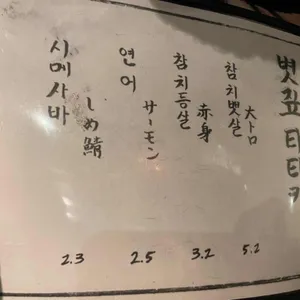 볏짚 타타키
참치뱃살
大トロ
5.2
참치등살
赤身
3.2
연어
サーモン
2.5
시메사바
しめ鯖
2.3